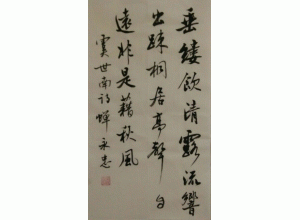 垂緌飲清露流響
出疎桐居高聲自
遠非是藉秋風
虞世南詩蟬永志